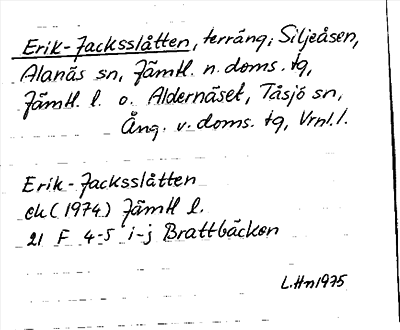 Erik-Jacksslåtten, terräng; Siljeåsen,
Alanäs sn, Jämtl. n. doms. tg,
Jämtl. l. o. Aldernäset, Tåsjö sn,
Ång. v. doms. tg, Vrnl. l.
Erik-Jacksslåtten
ek (1974) Jämtl l.
21 F 4-5 i-j Brattbäcken
L.Hn 1975